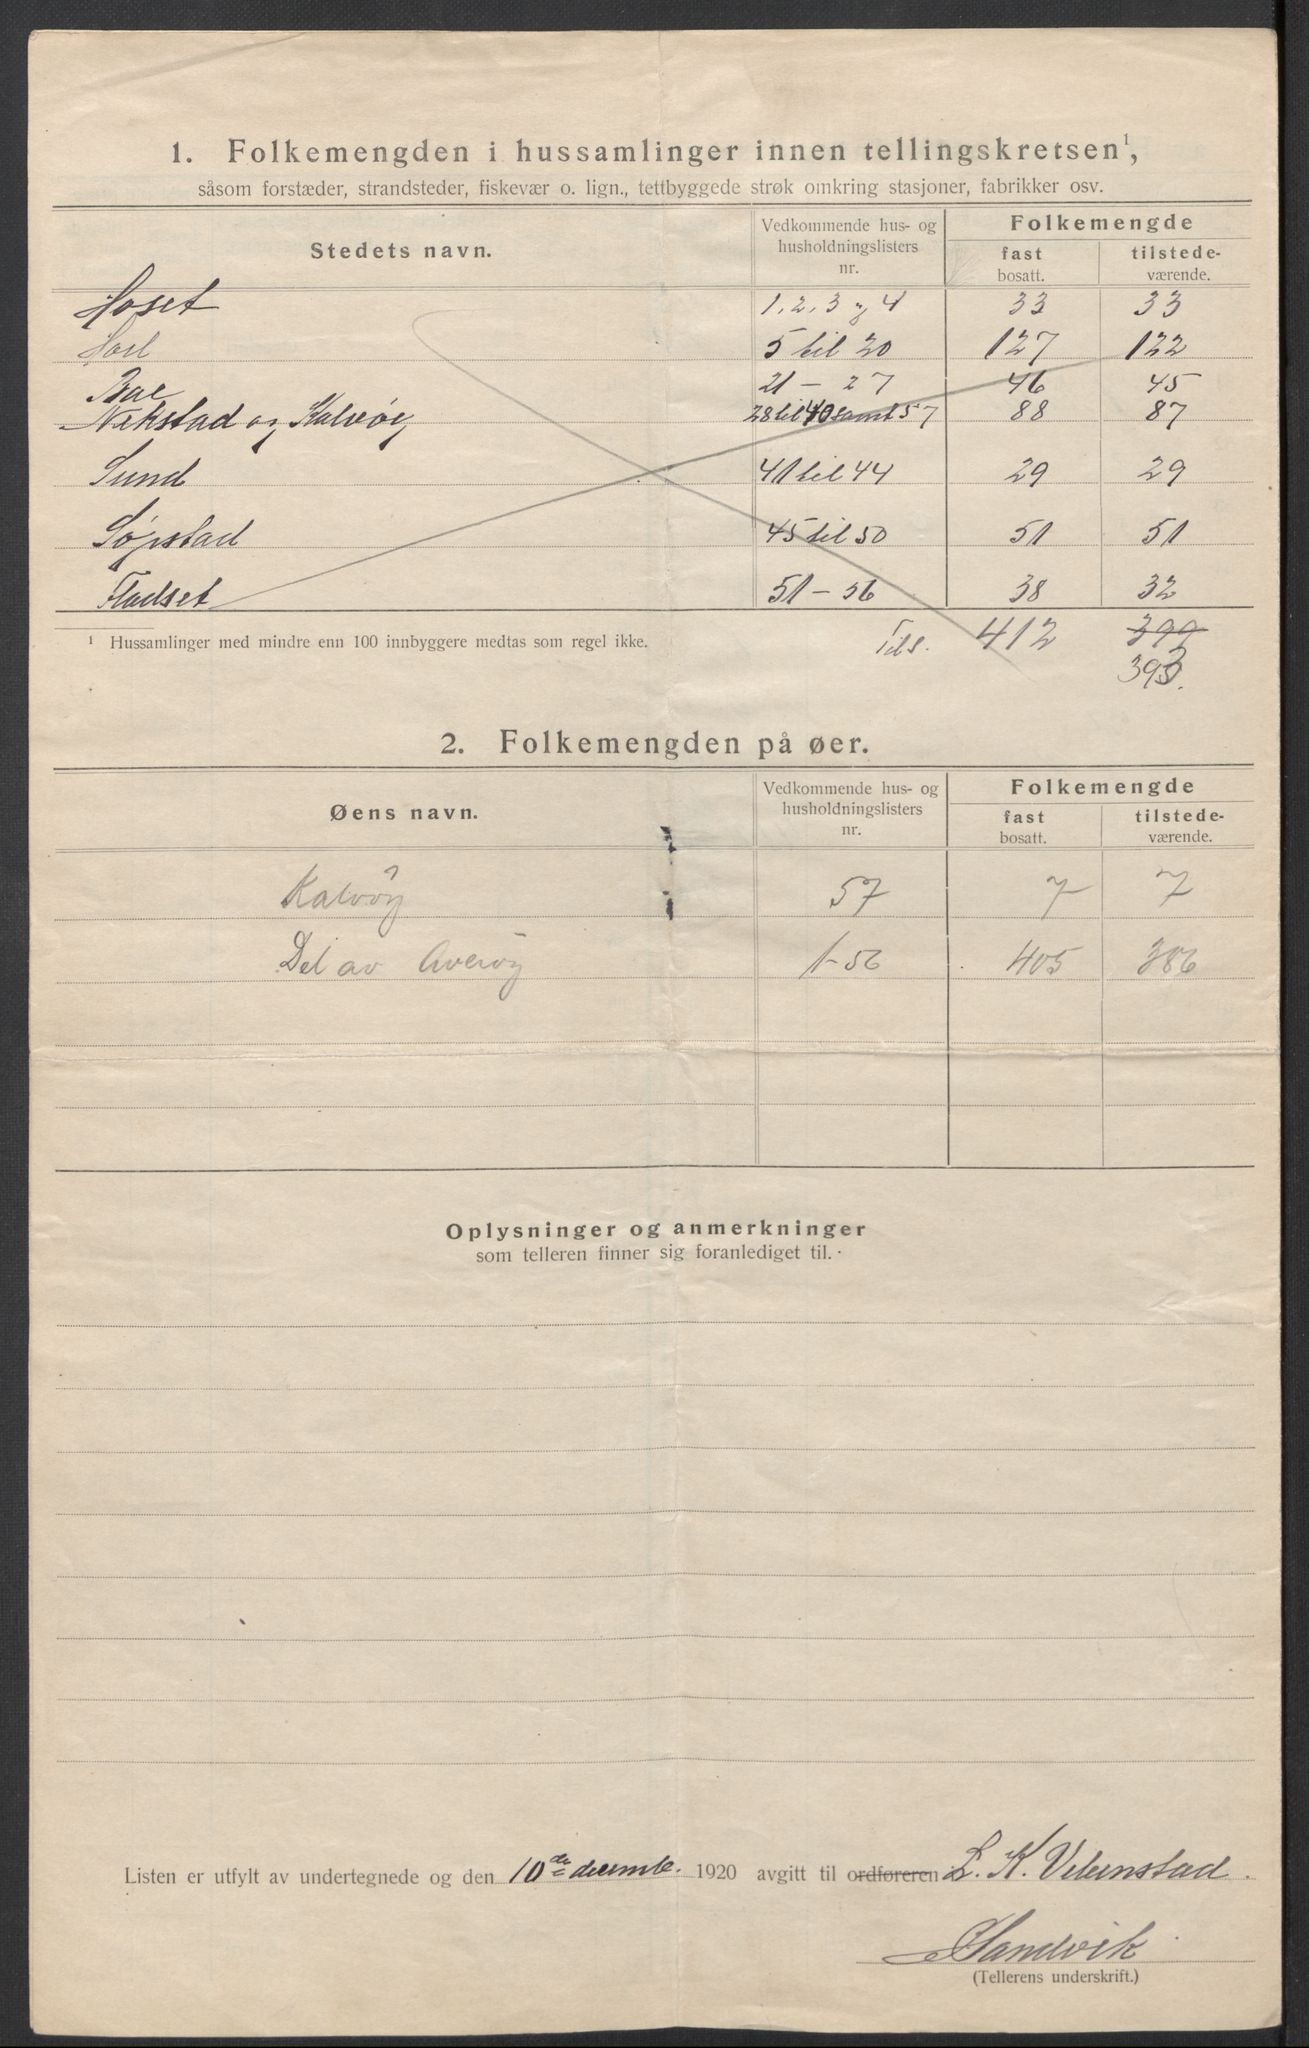 1. Folkemengden i hussamlinger innen tellingskretsen¹,
såsom forstæder, strandsteder, fiskevær o. lign., tettbyggede strøk omkring stasjoner, fabrikker osv.
Stedets navn. Vedkommende hus- og husholdningslisters nr. Folkemengde fast bosatt. tilstede-værende.
Hoset 1, 2, 3 og 4 33 33
Hoel 5 til 20 127 122
Bae 21 - 27 46 45
Nekstad og Kalvøy 28 til 40 samt 57 88 87
Sund 41 til 44 29 29
Sørstad 45 til 50 51 51
Fladset 51 - 56 38 32
¹ Hussamlinger med mindre enn 100 innbyggere medtas som regel ikke. Tils. 412 399
393.
2. Folkemengden på øer.
Øens navn. Vedkommende hus- og husholdningslisters nr. Folkemengde fast bosatt. tilstede-værende.
Kalvøy 57 7 7
Del av Averøy 1-56 405 386
Oplysninger og anmerkninger
som telleren finner sig foranlediget til.
Listen er utfylt av undertegnede og den 10de decembr. 1920 avgitt til ordføreren L. K.
Sandvik
(Tellerens underskrift.)